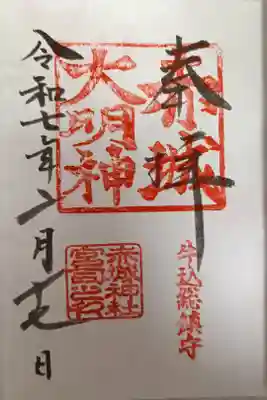 奉拝
赤城
大明神
牛込総鎮守
赤城神社
宮司之印
令和七年二月十七日